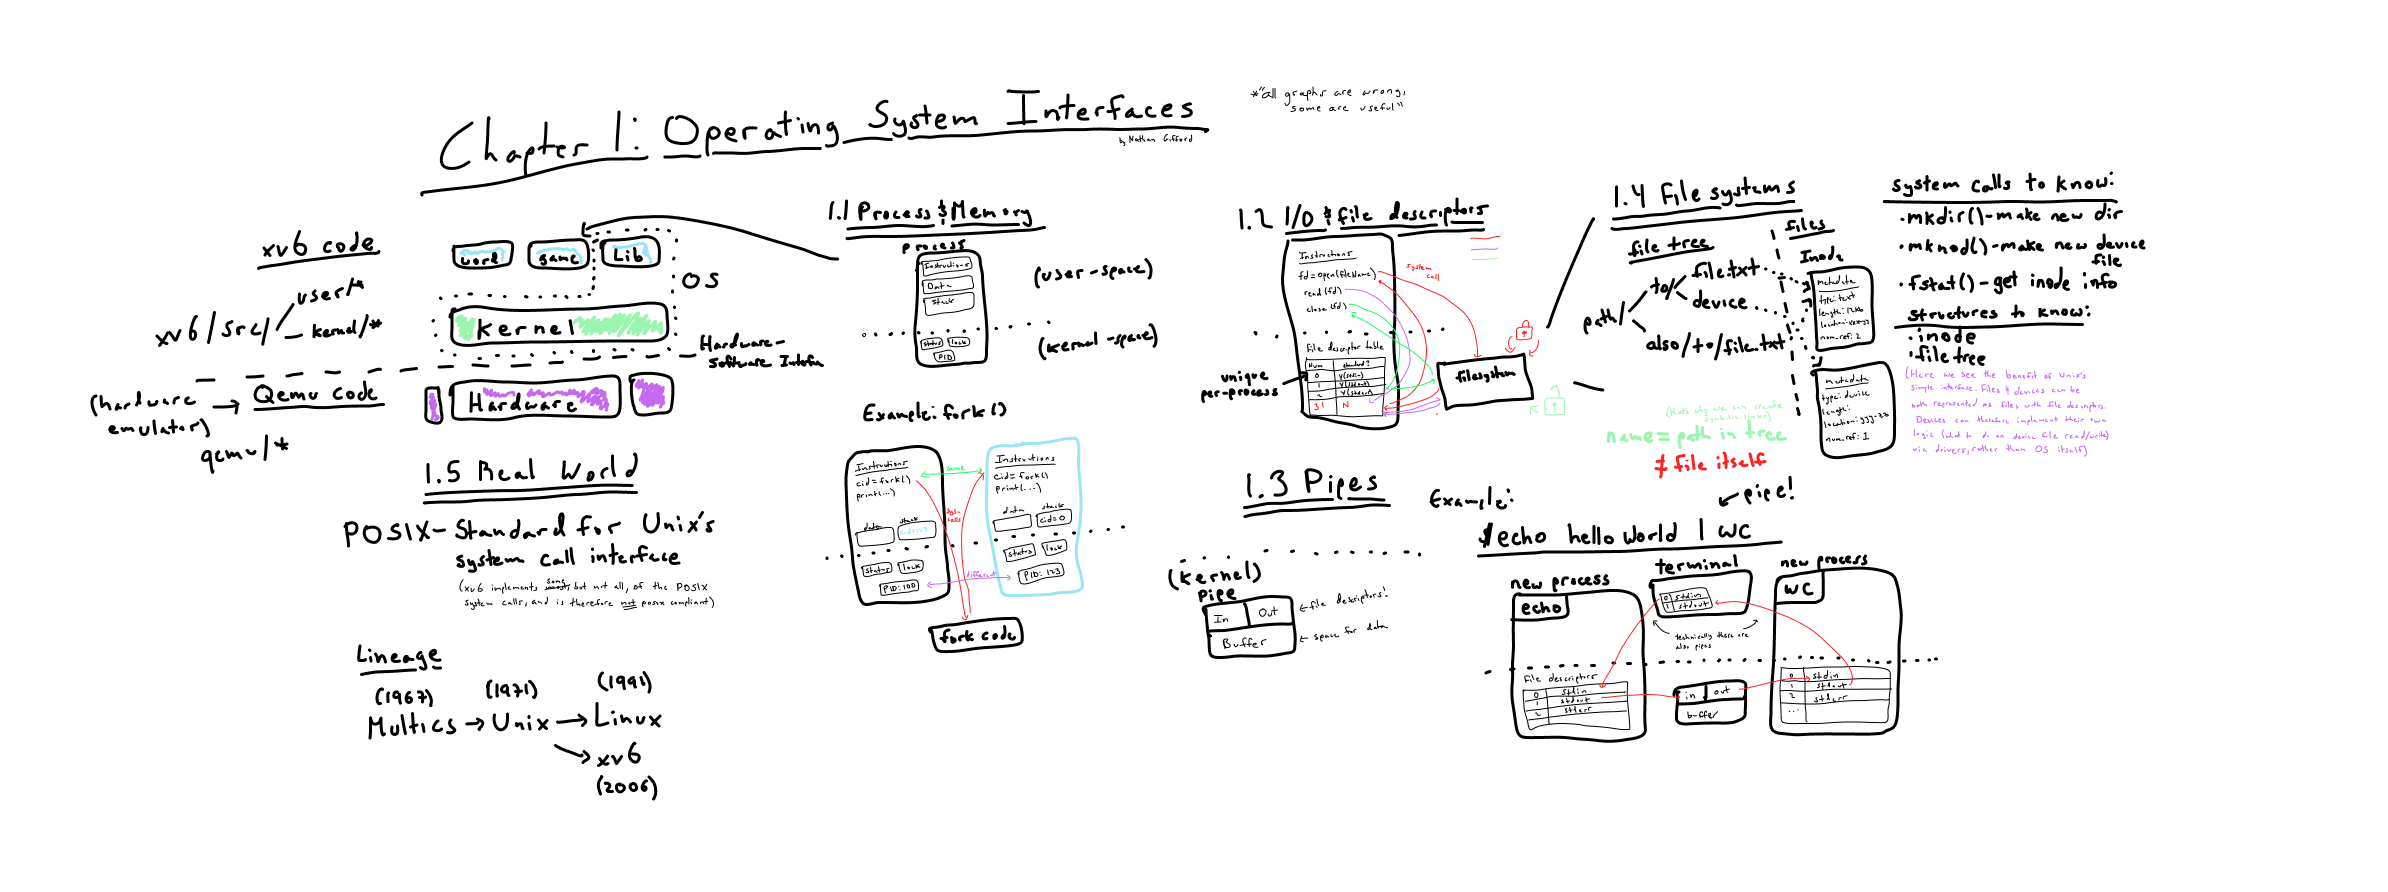 Chapter 1: Operating System Interfaces
by Nathan Gifford
*"all graphs are wrong,
some are useful"
xv6 code
xv6/src/
user/*
kernel/*
word
game
Lib
OS
Kernel
Hardware-
Software
Hardware
Qemu code
(hardware
emulator)
qemu/*
1.1 Process & Memory
process
Instructions
Data
Stack
(user-space)
status
lock
PID
(kernel-space)
Example: fork()
Instructions
cid=fork()
print(...)
data
stack
status
lock
PID:100
same
sys-
calls
different
Instructions
cid=fork()
print(...)
data
stack
cid=0
status
lock
PID:123
fork code
1.2 I/O & file descriptors
Instructions
fd=open(fileName)
read(fd)
close(fd)
system
call
file descriptor table
Num
standard?
0 Y(stdin)
1 Y(stdout)
2 Y(stderr)
31 N
unique
per-process
filesystem
1.3 Pipes
(Kernel)
Pipe
In
Out
Buffer
←file descriptors!
← space for data
Example:
pipe!
$echo hello world | wc
new process
echo
File descriptors
0 stdin
1 stdout
2 stderr
terminal
0 stdin
1 stdout
technically these are
also pipes
in
out
buffer
new process
wc
0 stdin
1 stdout
2 stderr
...
1.4 File systems
file tree
path/
to/
file.txt
device
also/to/file.txt
files
Inode
metadata
type:text
length:12kb
location:xxx-yy
num_ref: 2
metadata
type:device
length:
location:yyy-zz
num_ref: 1
(that's why we can create
symbolic links)
name = path in tree
≠ file itself
system calls to know:
·mkdir()-make new dir
·mknod()-make new device
file
·fstat()-get inode info
structures to know:
·inode
·file tree
(Here we see the benefit of Unix's
simple interface. Files & devices can be
both represented as files with file descriptors.
Devices can therefore implement their own
logic (what to do on device file read/write)
via drivers, rather than OS itself)
1.5 Real World
POSIX-Standard for Unix's
system call interface
(xv6 implements some, but not all, of the POSIX
system calls, and is therefore not posix compliant)
Lineage
(1967)
(1971)
(1991)
Multics → Unix → Linux
xv6
(2006)